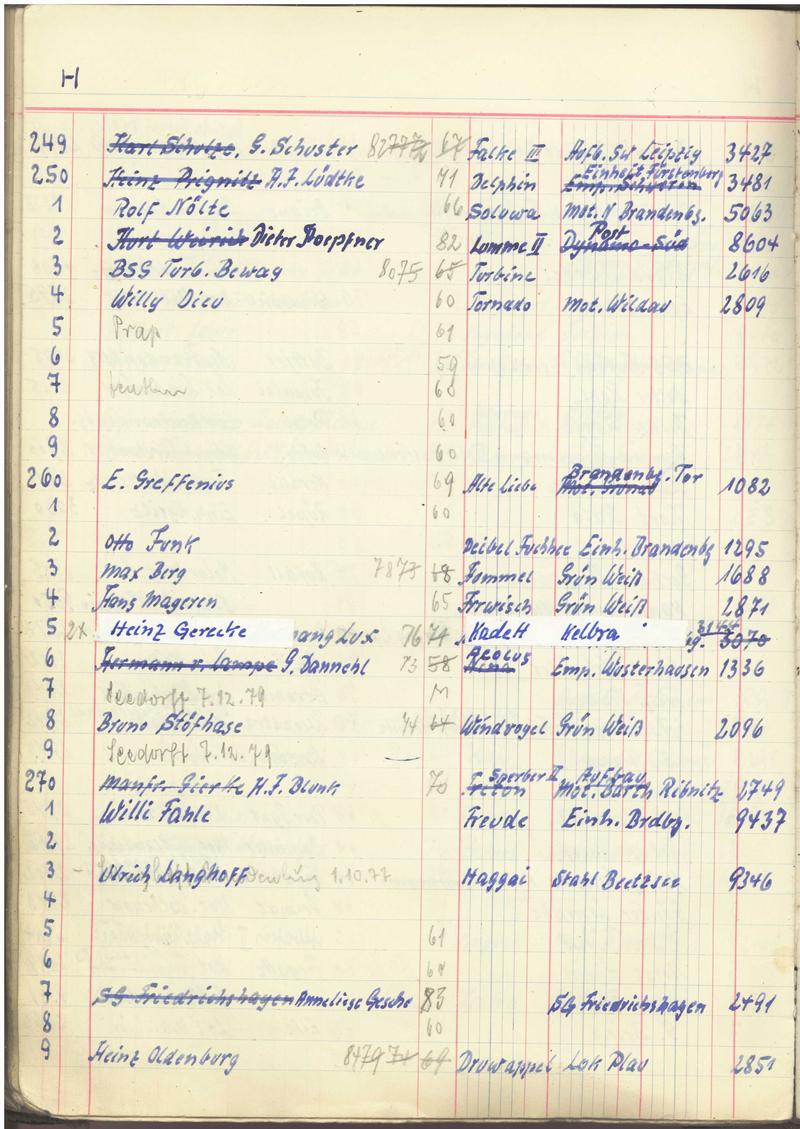 H
249 Karl Schulze, G. Schuster 67 Falke III Aufb. SW Leipzig 3427
250 Heinz Prignitz H.J. Lüdtke 71 Delphin Einheit Fürstenberg 3481
1 Rolf Nölte 66 Soluwa Mot. N Brandenbg. 5063
2 Kurt Weirich Dieter Doepfner 82 Lumme II Dynamo-Süd Post 8604
3 BSG Turb. Bewag 8075 65 Turbine 2616
4 Willy Dieu 60 Tornado Mot. Wildau 2809
5 Prap 61
6 59
7 60
8 60
9 60
260 E. Greffenius 69 Alte Liebe Brandenbg. Tor 1082
1 60
2 Otto Funk Deibel Einh. Brandenbg 1295
3 Max Berg 7873 68 Fommel Grün Weiß 1688
4 Hans Mageren 65 Irrwisch Grün Weiß 2871
5 2x Heinz Gerecke ang Lux 76 71 Kadett Kelbra g. 3144 5070
6 Hermann v. Lampe G. Dannehl 73 58 Nina Aeolus Emp. Wusterhausen 1336
7 Seedorff 7.12.79
8 Bruno Stöfhase 74 64 Windvogel Grün Weiß 2096
9 Seedorff 7.12.79
270 Manfr. Gierke H.J. Blunk 70 Triton Sperber II Mot. Barth Aufbau Ribnitz 2749
1 Willi Fahle Freude Einh. Brdbg. 9437
2
3 Ulrich Langhoff 1.10.77 Haggai Stahl Beetzsee 9346
4
5 61
6
7 SG Friedrichshagen Anneliese Gesche 83 SG Friedrichshagen 2491
8 60
9 Heinz Oldenburg 8479 71 69 Druwappel Lok Plau 2851